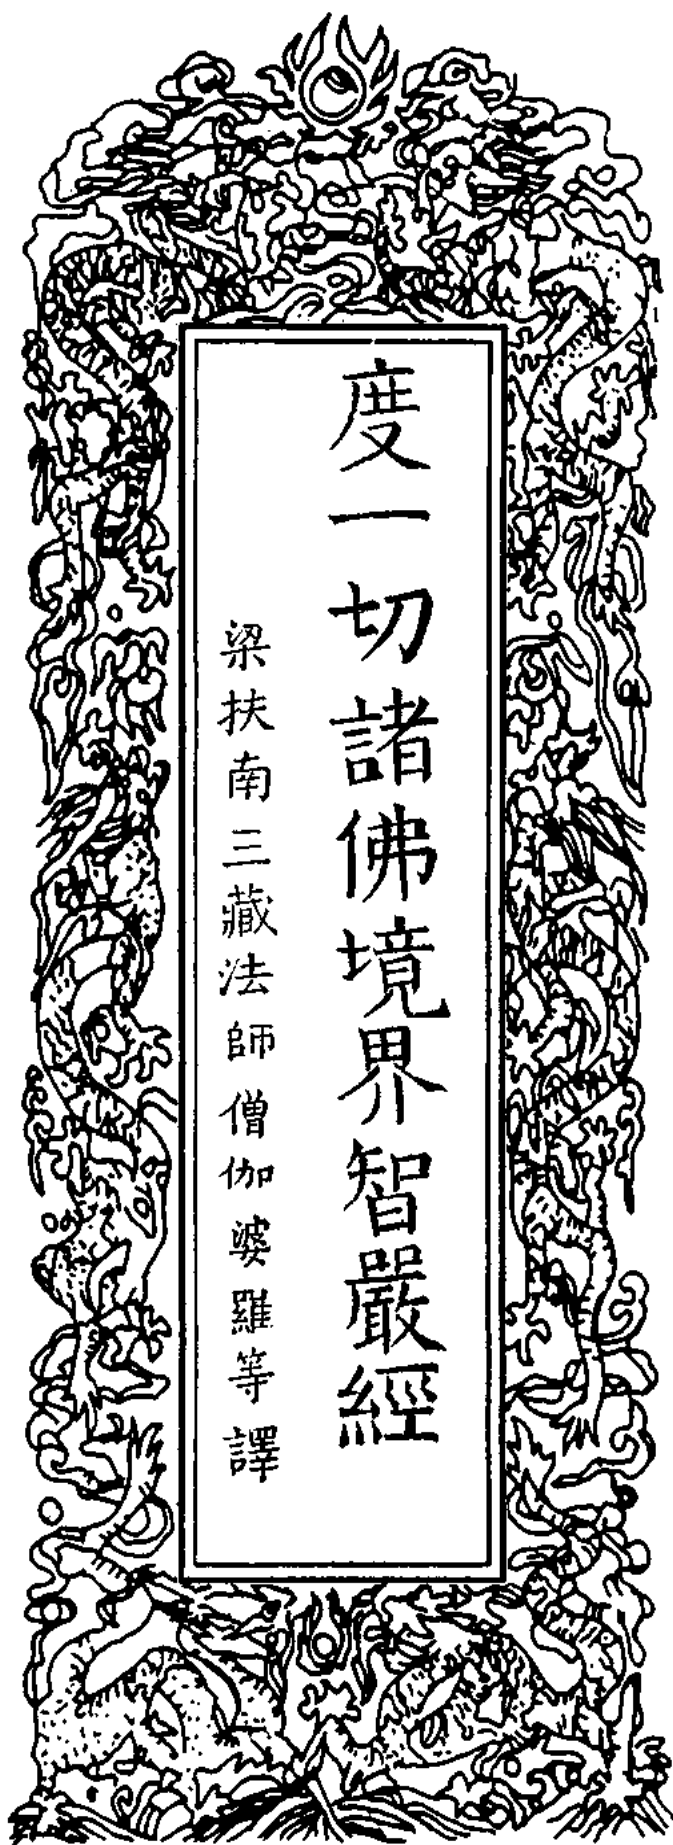 度一切諸佛境界智嚴經
梁扶南三藏法師僧伽婆羅等譯